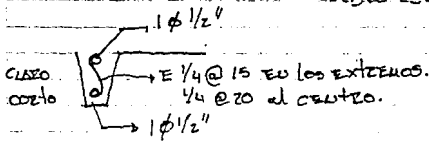 1 φ 1/2"
CLARO CORTO
E 1/4 @ 15 EN LOS EXTREMOS.
1/4 @ 20 al CENTRO.
1 φ 1/2"